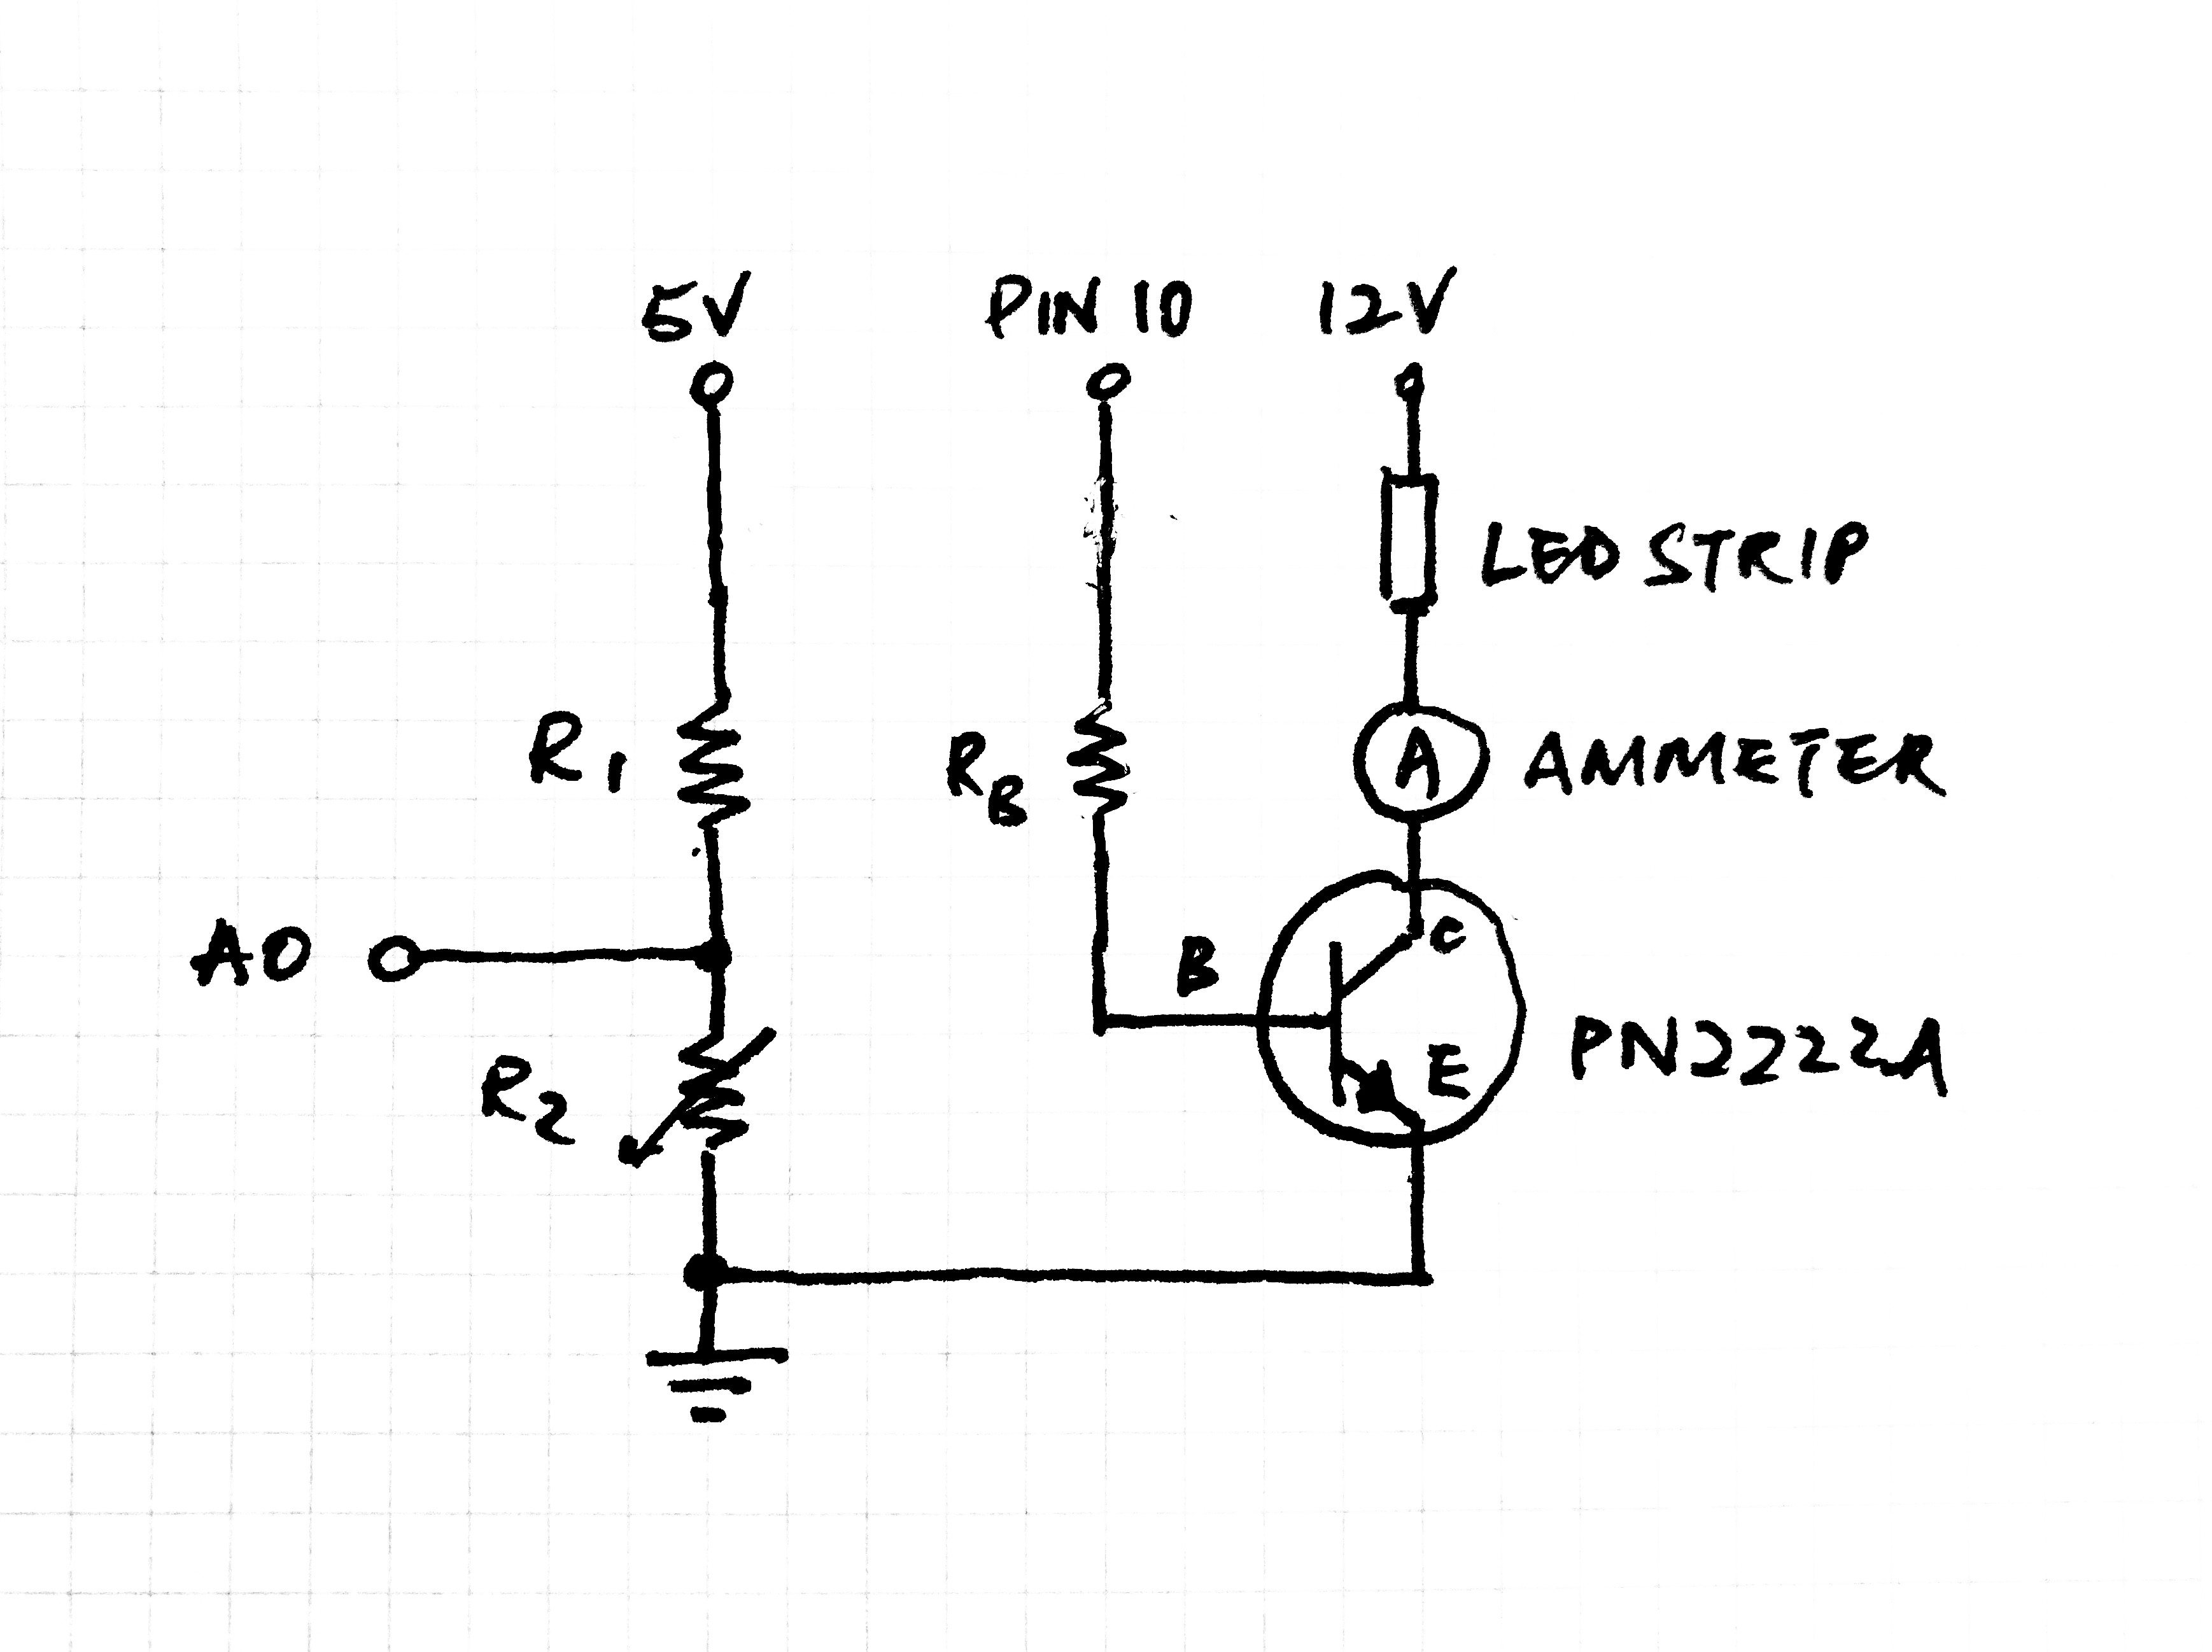 5V
PIN 10
12V
LED STRIP
R1
RB
A
AMMETER
A0
B
C
E
PN2222A
R2